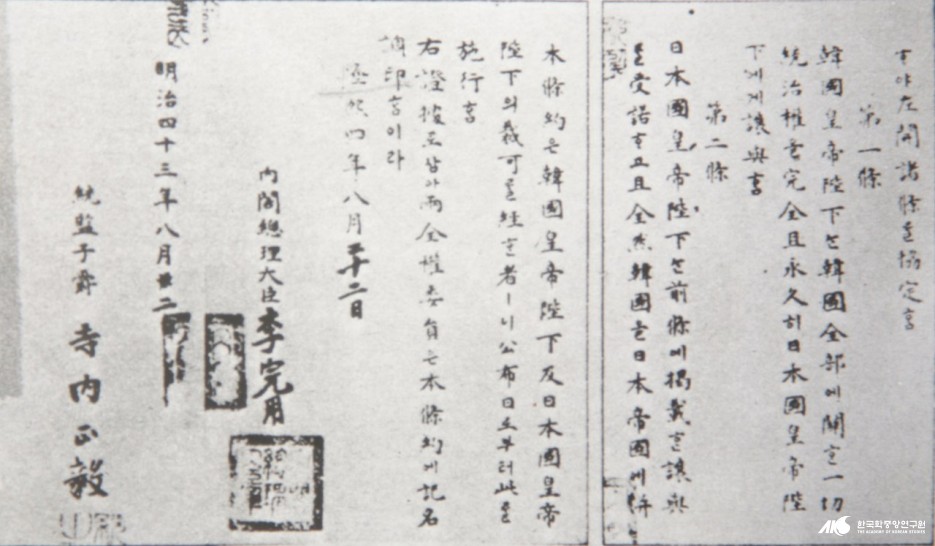 ᄒᆞ야左開諸條를協定홈
第一條
韓國皇帝陛下는韓國全部에關ᄒᆞᆫ一切
統治權을完全且永久히日本國皇帝陛
下에게讓與홈
第二條
日本國皇帝陛下는前條에揭載ᄒᆞᆫ讓與
를受諾ᄒᆞ고且全然韓國을日本帝國에倂
本條約은韓國皇帝陛下及日本國皇帝
陛下의裁可를經ᄒᆞᆫ者ㅣ니公布日로부터此를
施行홈
右證據로삼아兩全權委員은本條約에記名
調印홈이라
隆熙四年八月二十二日
內閣總理大臣李完用
明治四十三年八月廿二
統監子爵 寺内正毅
AKS 한국학중앙연구원
THE ACADEMY OF KOREAN STUDIES